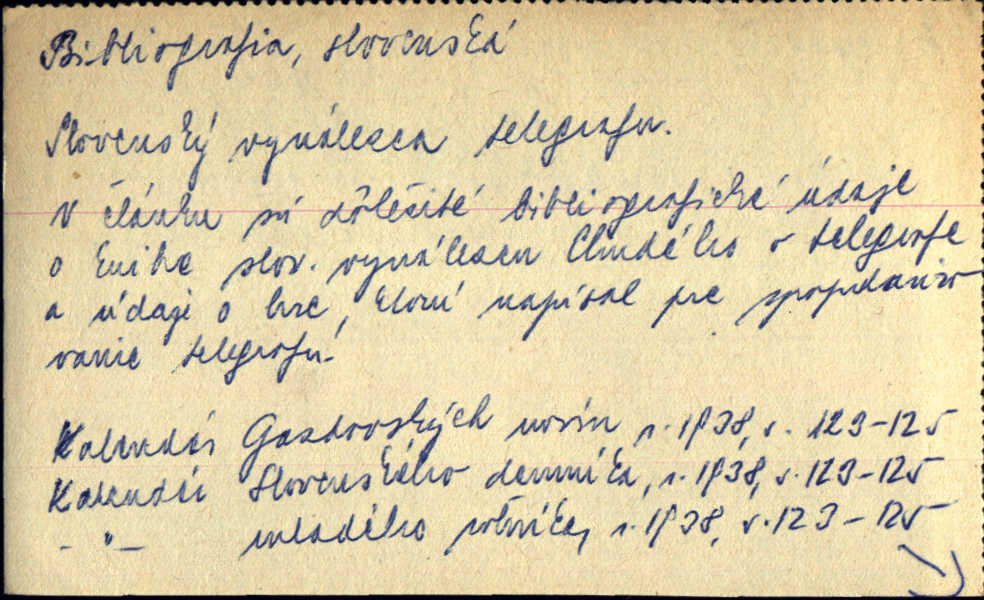 Bibliografia, slovenská
Slovenský vynálezca telegrafu.
V článku sú dôležité bibliografické údaje
o knihe slov. vynálezcu Chudého o telegrafe
a údaje o hre, ktorú napísal pre spopulárizo-
vanie telegrafu.
Kalendár Gazdovských novín, r. 1938, s. 123-125
Kalendár Slovenského denníka, r. 1938, s. 123-125
- " - mladého roľníka, r. 1938, s. 123-125